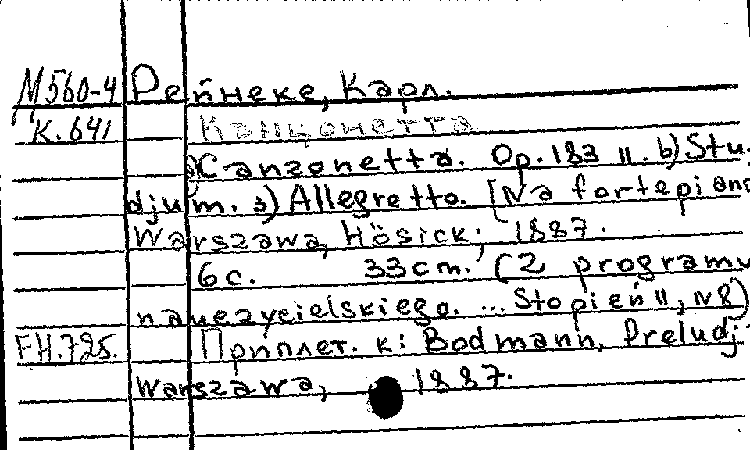 М560-4 Рейнеке, Карл.
К.641 Канцонетта
a) Canzonetta. Op.183 II. b) Stu-
djum. з) Allegretto. [Na fortepiano
Warszawa, Hösick, 1887.
6 с. 33 cm. (2 programu
nauczycielskiego. ... Stopień II, N8)
FH.725. Приплет. к: Bodmann. Preludj.
Warszawa, 1887.